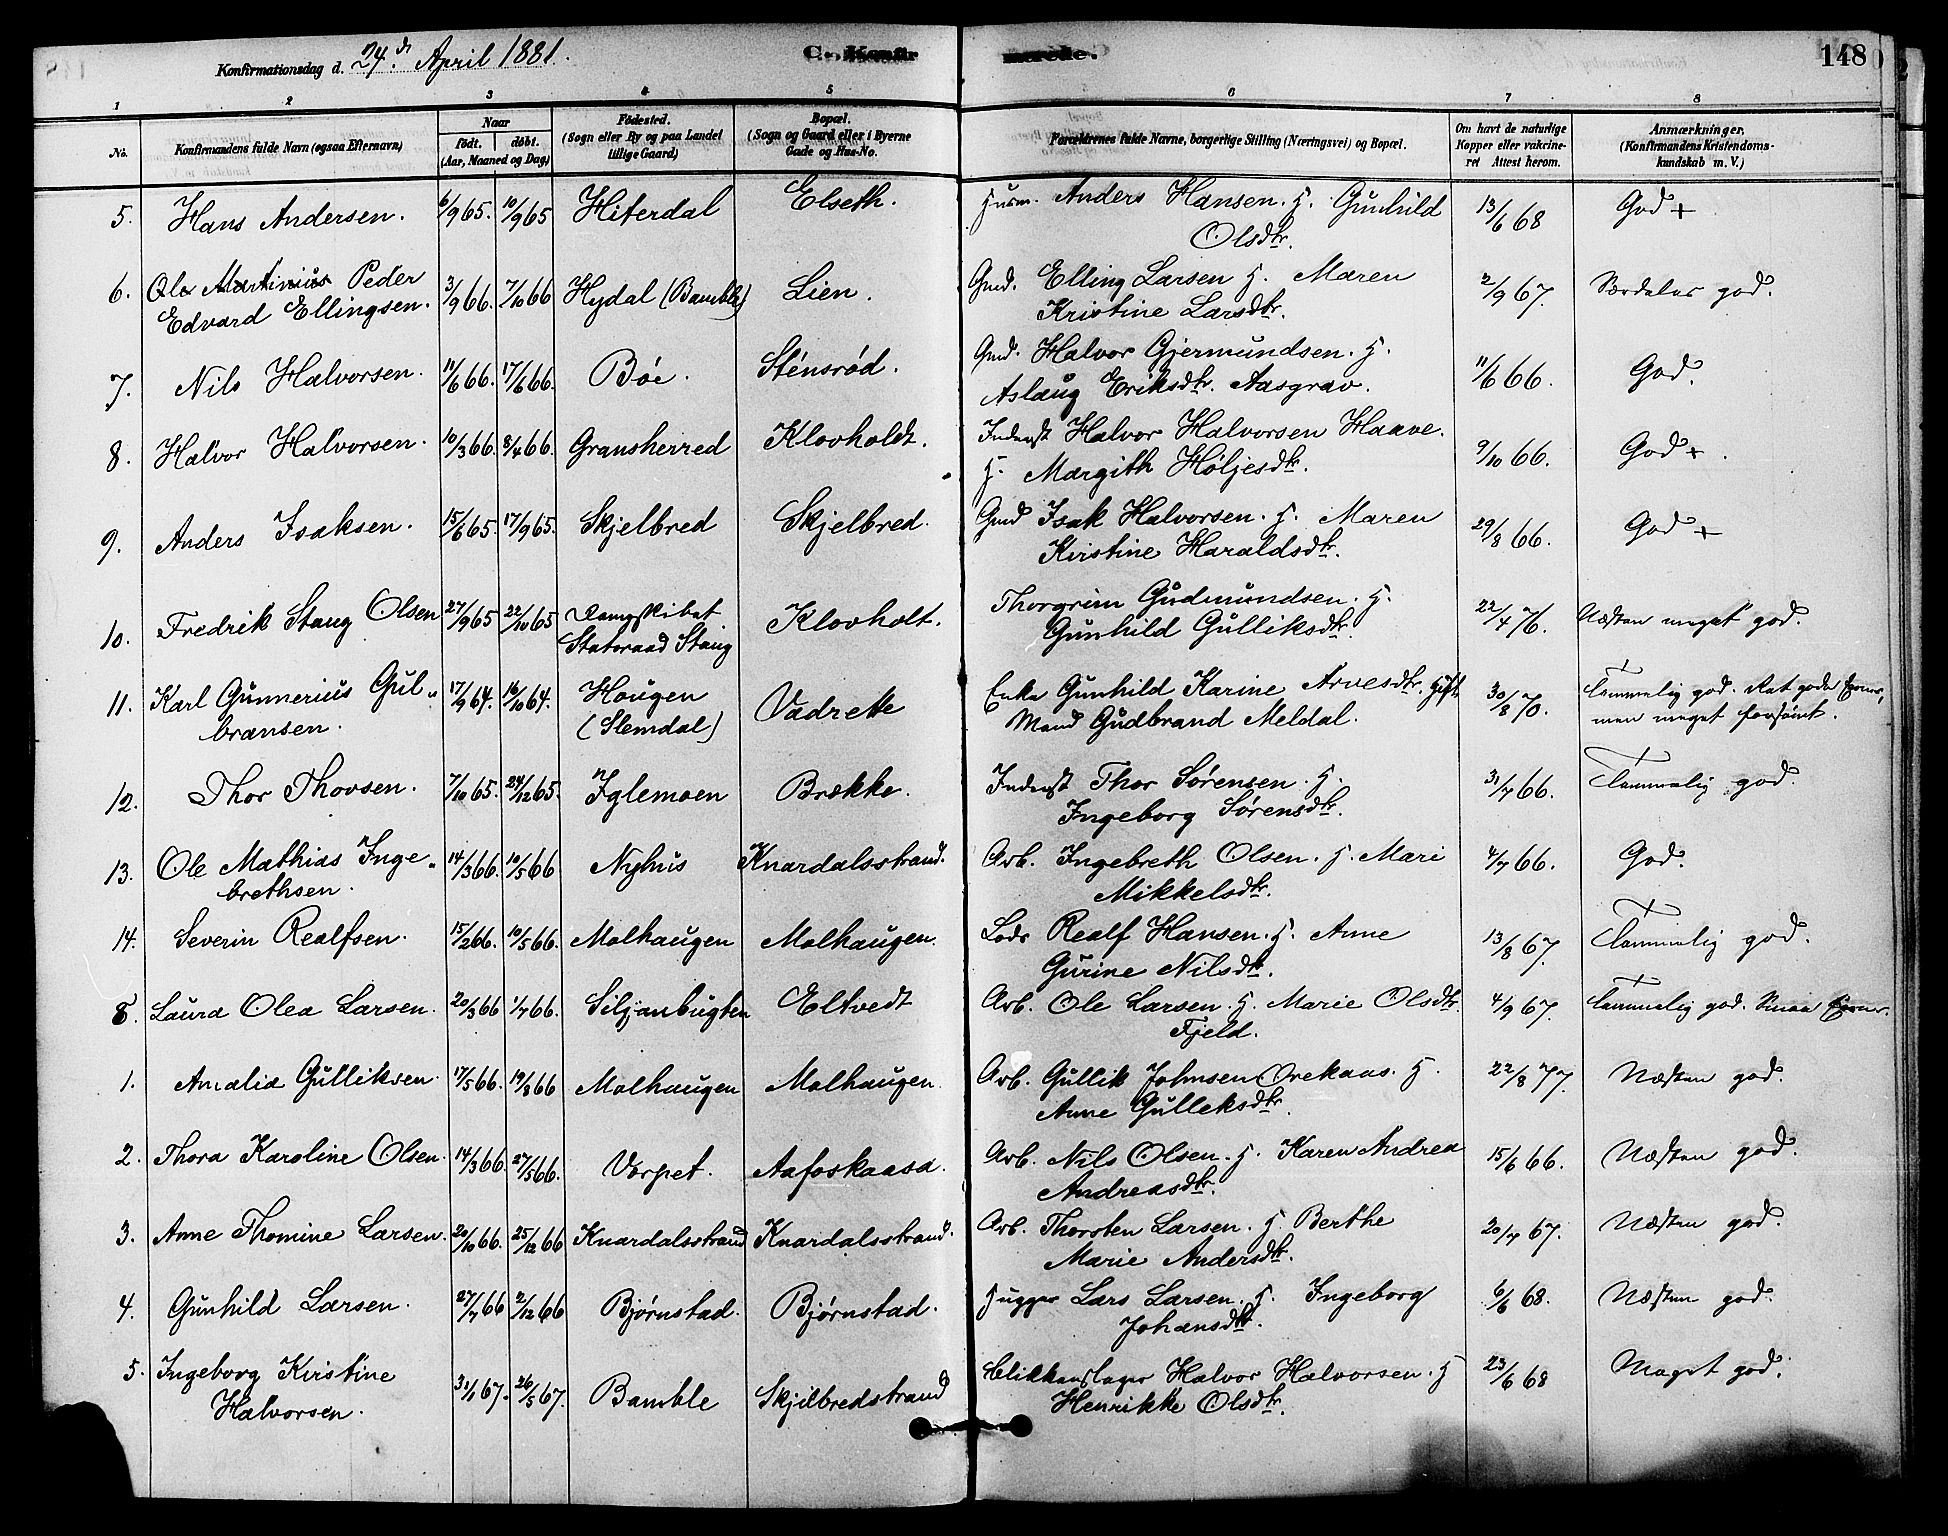 Konfirmationsdag d. 24de April 1881.
C. Konfirmerede.
148
1 2 3 4 5 6 7 8
No.
Konfirmandens fulde Navn (ogsaa Efternavn)
Naar
født. døbt.
(Aar, Maaned og Dag)
Fødested.
(Sogn eller By og paa Landet
tillige Gaard)
Bopæl.
(Sogn og Gaard eller i Byerne
Gade og Hus-No.
Forældrenes fulde Navne, borgerlige Stilling (Næringsvei) og Bopæl.
Om havt de naturlige
Kopper eller vakcine-
ret Attest herom.
Anmærkninger.
(Konfirmandens Kristendoms-
kundskab m. V.)
5. Hans Andersen. 6/9 65. 10/9 65 Hiterdal Elseth. Husm. Anders Hansen. H. Gunhild
Olsdtr. 13/6 68 God +
6. Ole Martinius Peder
Edvard Ellingsen. 3/9 66. 7/10 66 Hydal (Bamble) Lien. Gmd. Elling Larsen H. Maren
Kristine Larsdtr. 2/9 67. Særdeles god.
7. Nils Halvorsen. 11/6 66. 17/6 66. Bøe. Stensrød. Gmd. Halvor Gjermundsen. H.
Aslaug Eriksdtr. Aasgrav. 11/6 66. God.
8. Halvor Halvorsen. 10/3 66. 8/4 66. Gransherred Klovholdt. Inderst Halvor Halvorsen Haave.
H. Margith Höljesdtr. 9/10 66. God + .
9. Anders Isaksen. 15/6 65. 17/9 65. Skjelbred Skjelbred. Gmd Isak Halvorsen. H. Maren
Kirstine Haraldsdtr. 29/8 66. God +
10. Fredrik Stang Olsen 27/9 65 22/10 65 Dampskibet
Statsraad Stang Klovholt. Thorgrim Gudmundsen. H.
Gunhild Gulliksdtr. 22/4 76. Næsten meget god.
11. Karl Gunnerius Gul-
bransen. 17/9 64. 16/10 64. Hougen
(Slemdal) Vadrette Enke Gunhild Karine Arvesdtr. Gift.
Mand Gudbrand Meldal. 30/8 70. Temmelig god. Ret gode Evner,
men meget forsömt.
12. Thor Thovsen. 7/10 65. 24/12 65. Iglemoen Brække. Inderst Thor Sørensen. H.
Ingeborg Sørensdtr. 31/7 66. Temmelig god.
13. Ole Mathias Inge-
brethsen. 14/3 66. 10/5 66 Nyhus Knardalsstrand. Arb. Ingebreth Olsen. H. Mari
Mikkelsdtr. 4/7 66. God.
14. Severin Realfsen. 15/2 66. 10/5 66. Molhaugen Molhaugen. Lods Realf Hansen. H. Anne
Gurine Nilsdtr. 13/8 67. Temmelig god.
8. Laura Olea Larsen. 20/3 66 1/7 66. Siljanbugten Eltvedt Arb. Ole Larsen. H. Marie Olsdtr.
Fjeld. 4/9 67. Temmelig god. Smaa Evner.
1. Amalia Gulliksen. 17/5 66. 19/8 66 Molhaugen Molhaugen. Arb. Gullik Johnsen Orekaas. H.
Anne Gulleksdtr. 22/8 77. Næsten god.
2. Thora Karoline Olsen. 14/3 66. 27/5 66. Vorpet. Aafoskaasa. Arb. Nils Olsen. H. Karen Andrea
Andreasdtr. 15/6 66. Næsten god.
3. Anne Thomine Larsen. 20/10 66. 25/12 66 Knardalsstrand Knardalsstrand. Arb. Thorsten Larsen. H. Berthe
Marie Andersdtr. 20/7 67. Næsten god.
4. Gunhild Larsen. 27/7 66 2/12 66 Bjørnstad. Bjørnstad. Hugger Lars Larsen. H. Ingeborg
Johansdtr. 6/6 68. Næsten god.
5. Ingeborg Kirstine
Halvorsen. 3/1 67. 26/5 67. Bamble Skjelbredstrand Blikkenslager Halvor Halvorsen. H
Henrikke Olsdtr. 23/6 68 Meget god.